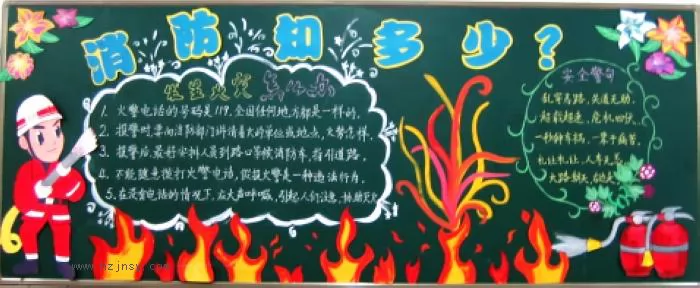 消防知多少?
发生火灾怎么办
1. 火警电话的号码是119,全国任何地方都是一样的.
2. 报警时,要向消防部门讲清着火的单位或地点,火势怎样.
3. 报警后,最好安排人员到路口等候消防车,指引道路.
4. 不能随意拨打火警电话,假报火警是一种违法行为.
5. 在没有电话的情况下,应大声呼喊,引起人们注意,协助灭火
安全警句
乱穿马路,失道无助.
超载超速,危机四伏.
一秒钟车祸,一辈子痛苦.
礼让礼让,人车无恙.
大路朝天,
www.hzjnsw.com